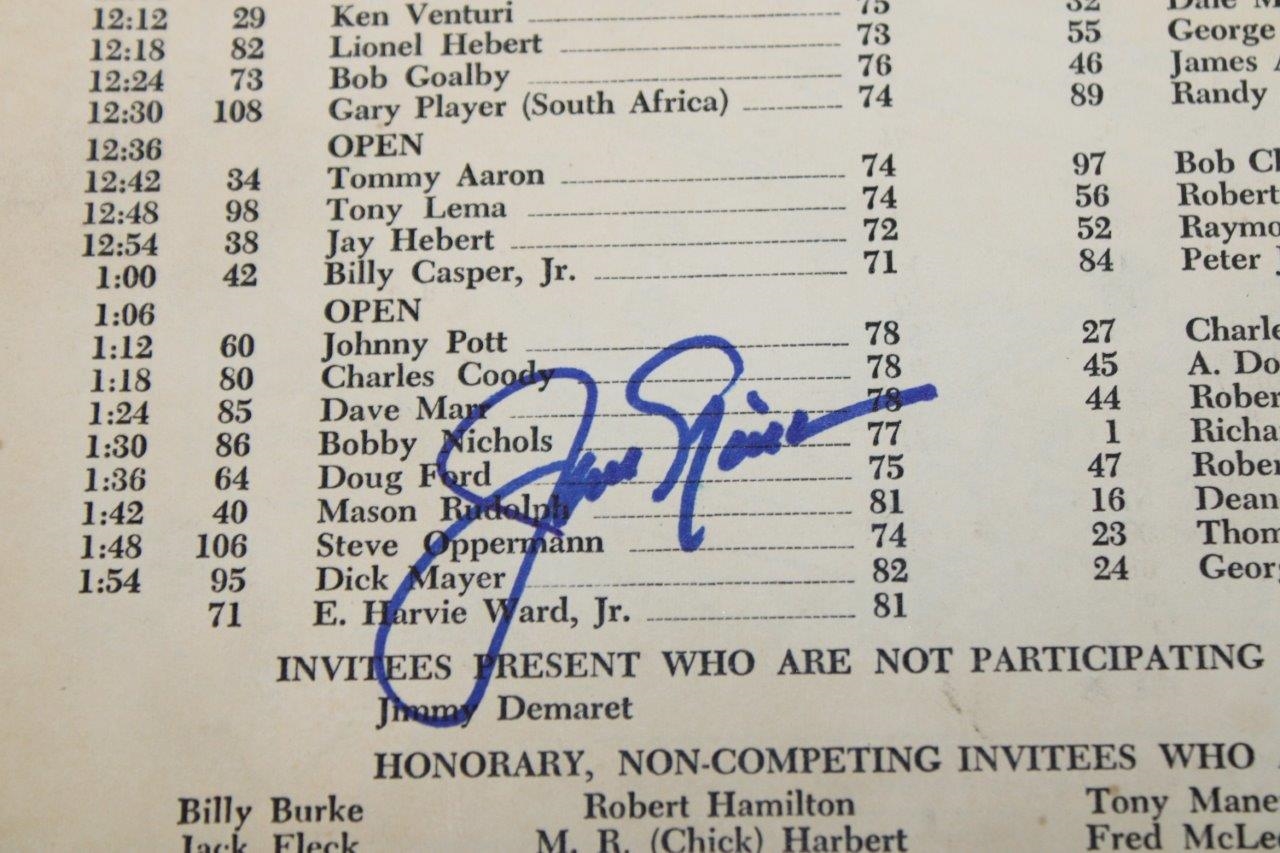 12:12 29 Ken Venturi 75 32 Dale
12:18 82 Lionel Hebert 73 55 George
12:24 73 Bob Goalby 76 46 James
12:30 108 Gary Player (South Africa) 74 89 Randy
12:36 OPEN
12:42 34 Tommy Aaron 74 97 Bob
12:48 98 Tony Lema 74 56 Robert
12:54 38 Jay Hebert 72 52 Raymo
1:00 42 Billy Casper, Jr. 71 84 Peter
1:06 OPEN
1:12 60 Johnny Pott 78 27 Charle
1:18 80 Charles Coody 78 45 A. Do
1:24 85 Dave Marr 78 44 Rober
1:30 86 Bobby Nichols 77 1 Richa
1:36 64 Doug Ford 75 47 Rober
1:42 40 Mason Rudolph 81 16 Dean
1:48 106 Steve Oppermann 74 23 Thom
1:54 95 Dick Mayer 82 24 Georg
71 E. Harvie Ward, Jr. 81
INVITEES PRESENT WHO ARE NOT PARTICIPATING
Jimmy Demaret
HONORARY, NON-COMPETING INVITEES WHO
Billy Burke Robert Hamilton Tony Mane
Jack Fleck M. R. (Chick) Harbert Fred McLe